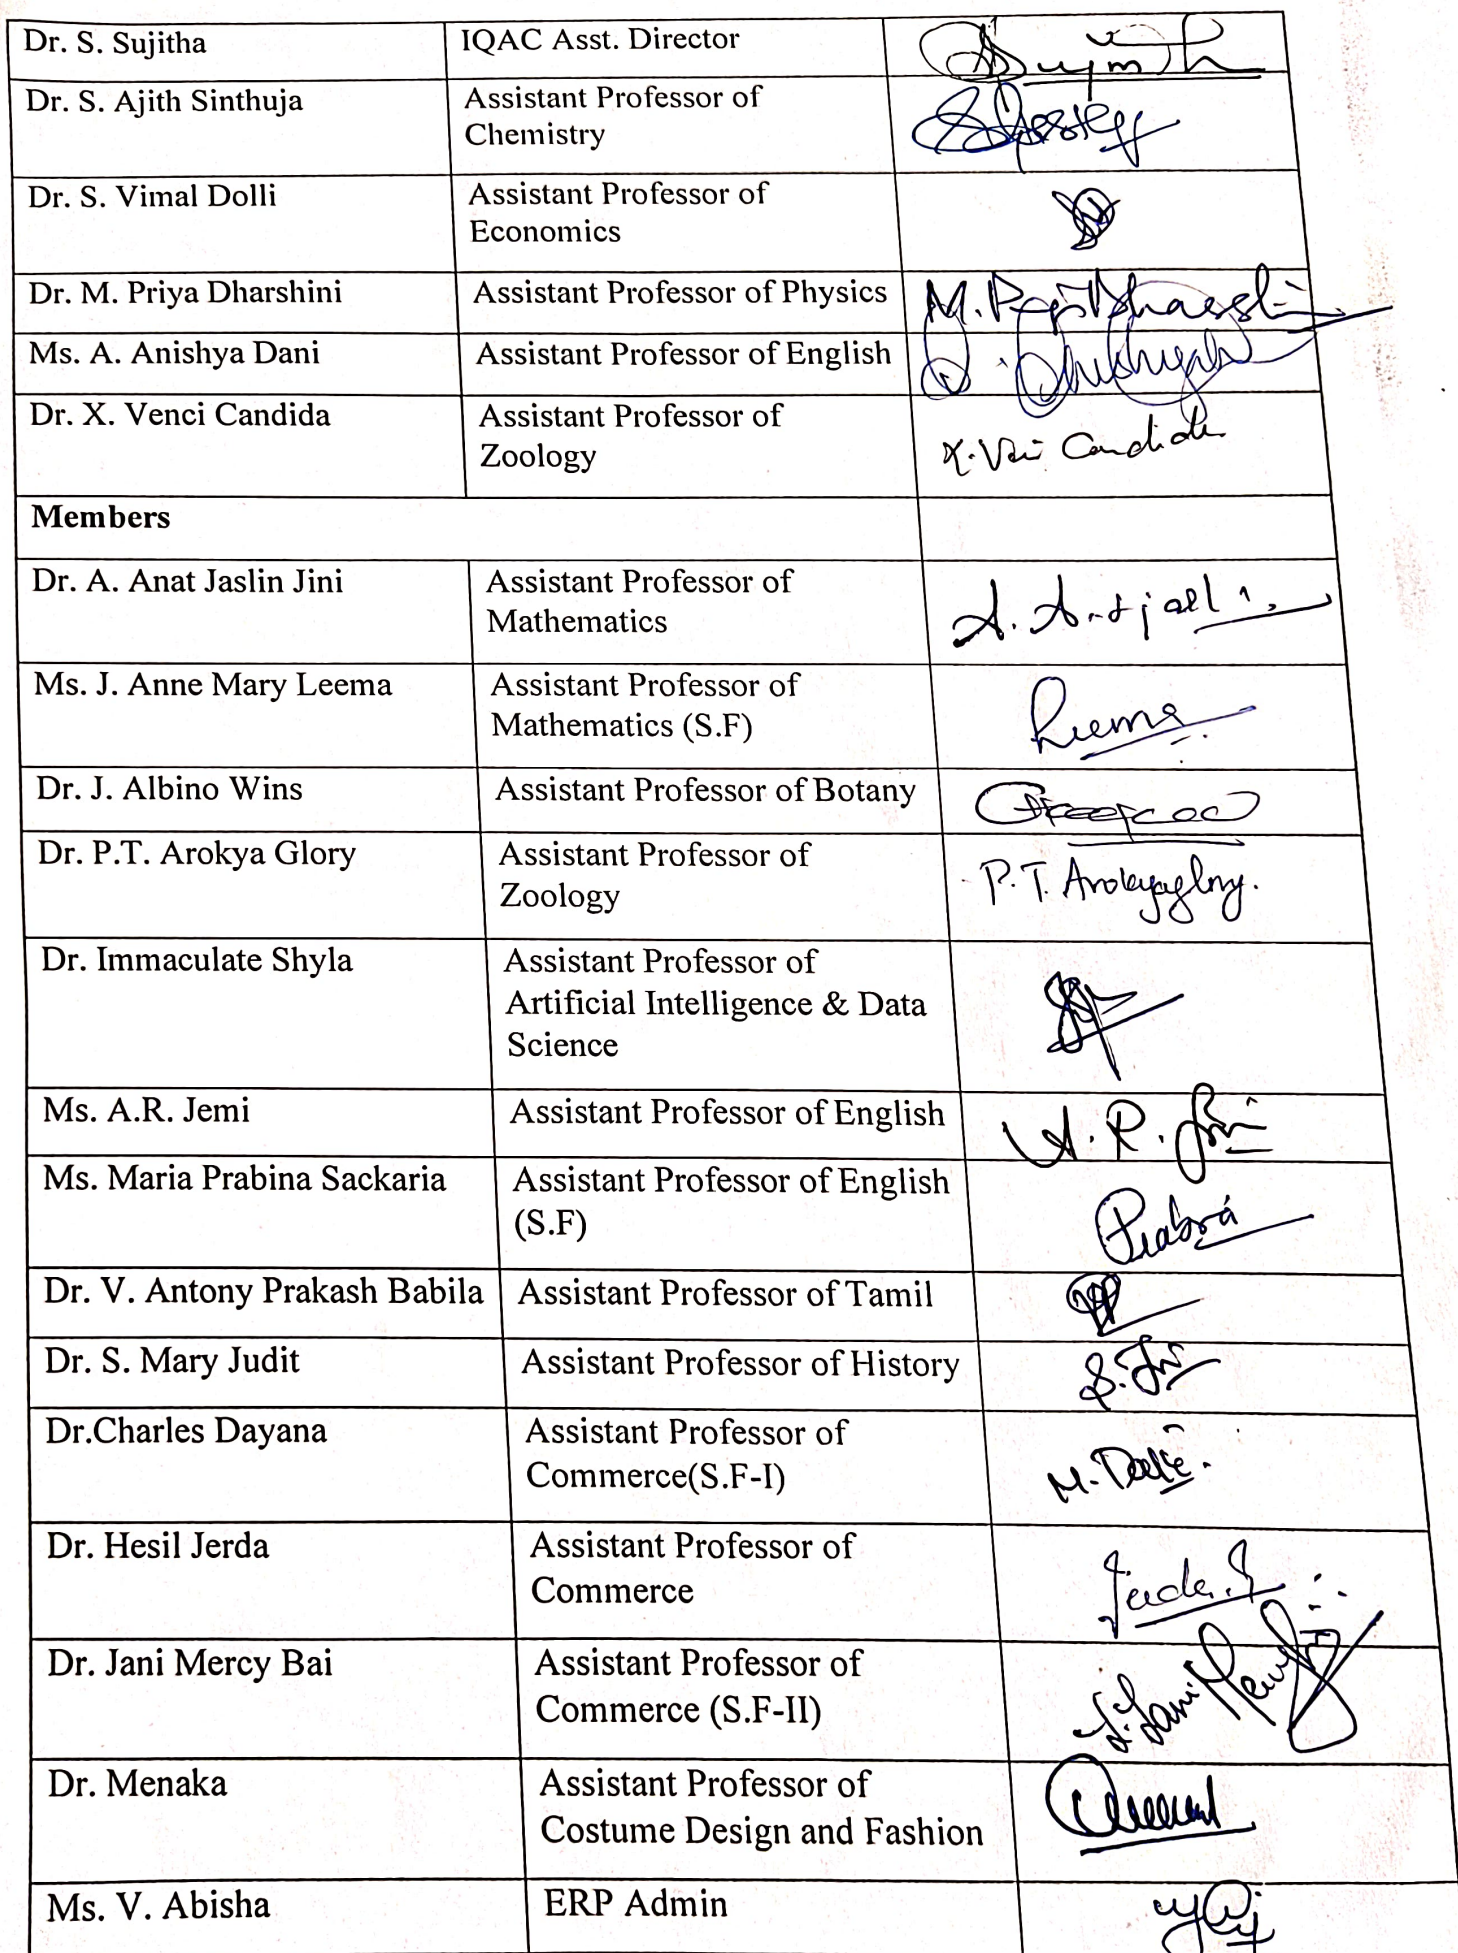 Dr. S. Sujitha IQAC Asst. Director
Dr. S. Ajith Sinthuja Assistant Professor of
Chemistry
Dr. S. Vimal Dolli Assistant Professor of
Economics
Dr. M. Priya Dharshini Assistant Professor of Physics
Ms. A. Anishya Dani Assistant Professor of English
Dr. X. Venci Candida Assistant Professor of
Zoology
Members
Dr. A. Anat Jaslin Jini Assistant Professor of
Mathematics
Ms. J. Anne Mary Leema Assistant Professor of
Mathematics (S.F) Leema
Dr. J. Albino Wins Assistant Professor of Botany
Dr. P.T. Arokya Glory Assistant Professor of
Zoology P.T. Arokyaglory.
Dr. Immaculate Shyla Assistant Professor of
Artificial Intelligence & Data
Science
Ms. A.R. Jemi Assistant Professor of English A.R.
Ms. Maria Prabina Sackaria Assistant Professor of English
(S.F)
Dr. V. Antony Prakash Babila Assistant Professor of Tamil
Dr. S. Mary Judit Assistant Professor of History
Dr.Charles Dayana Assistant Professor of
Commerce(S.F-I)
Dr. Hesil Jerda Assistant Professor of
Commerce
Dr. Jani Mercy Bai Assistant Professor of
Commerce (S.F-II)
Dr. Menaka Assistant Professor of
Costume Design and Fashion
Ms. V. Abisha ERP Admin